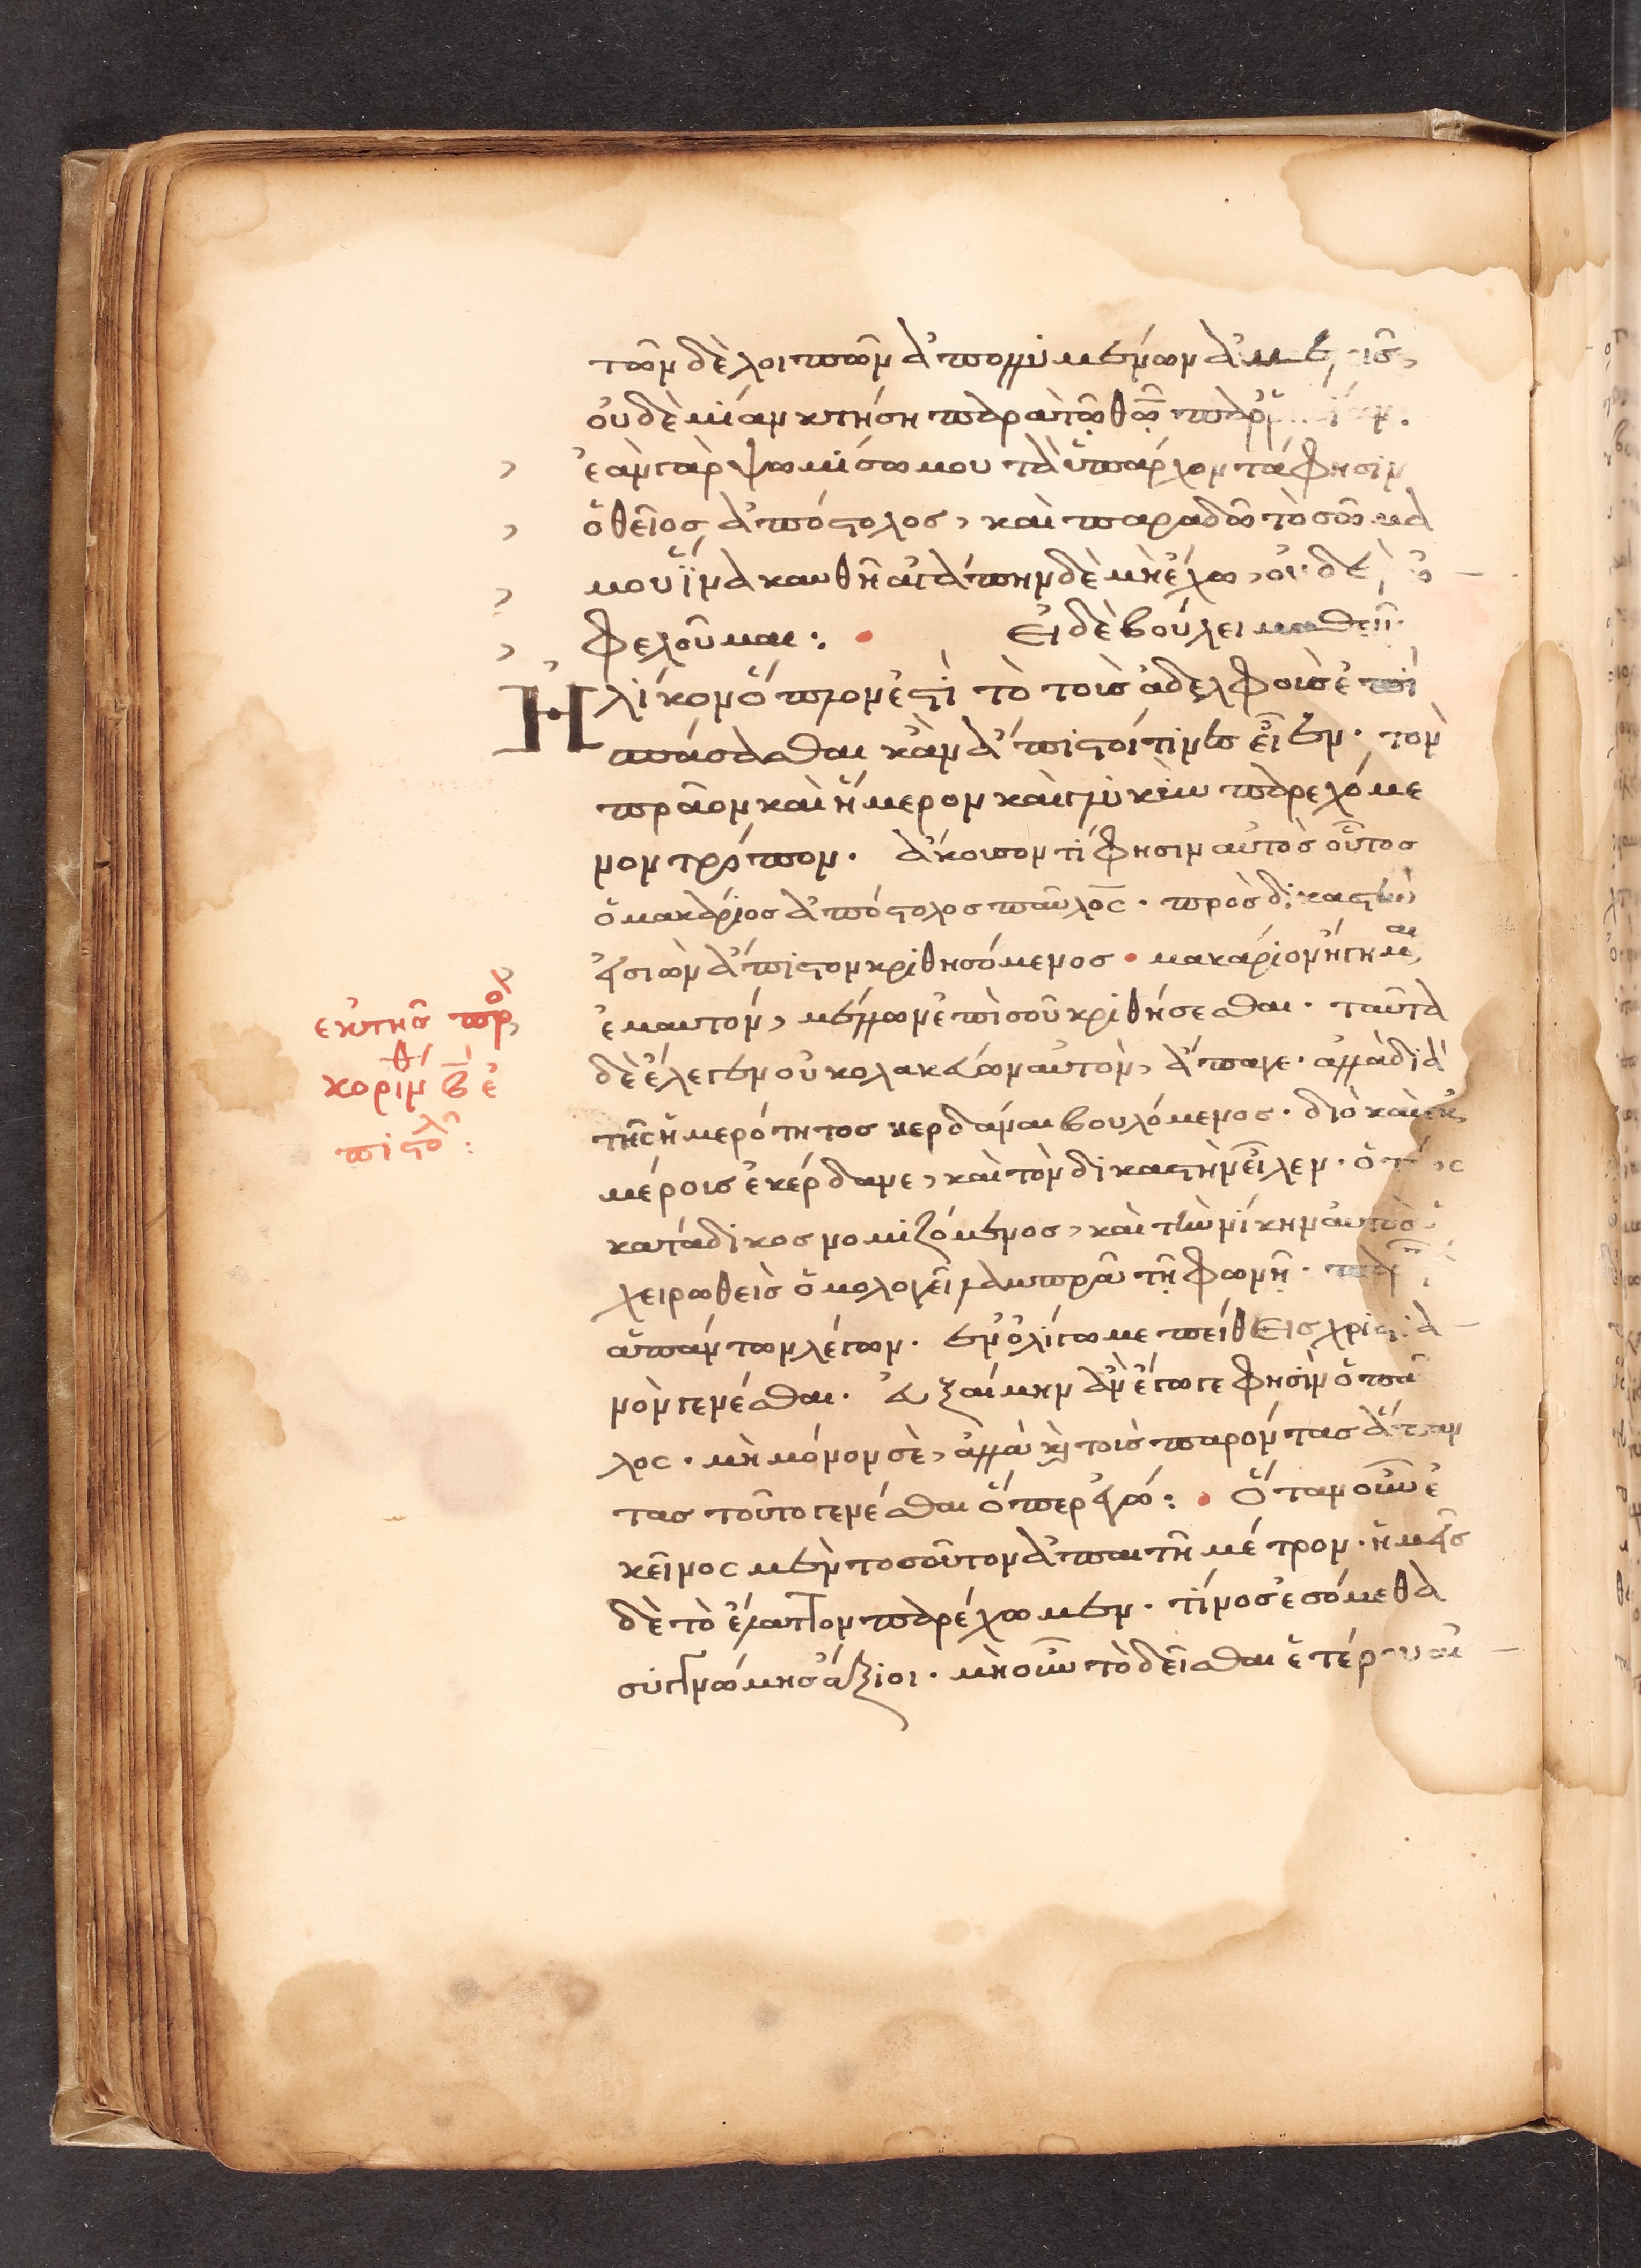 τῶν δὲ λοιπῶν ἀπολλυμένων ἀμελεῖς,
οὐδεμίαν κτήση παρὰ τῷ θῷ
ἐὰν γὰρ ψωμίσω μου τὰ ὑπάρχοντά φησὶν
ὁ θεῖος ἀπόστολος, καὶ παραδῶ τὸ σῶμα
μου ἵνα καυθῆ ἀγάπην δὲ μὴ ἔχω, οὐδὲν ὠ
φελοῦμαι: Εἰ δὲ βούλει μαθεῖν
Ἡλίκον ὅπλον ἐστὶ τὸ τοῖς ἀδελφοῖς ἐπι
σπάσασθαι κἂν ἄπιστοί τινες εἶεν· τὸν
πρᾶον καὶ ἥμερον καὶ γλυκὺν παρεχόμε
νον τρόπον· ἄκουσον τί φησιν αὐτὸς οὗτος
ὁ μακάριος ἀπόστολος παῦλος· πρὸς δικαστὴν
εἰσιὼν ἄπιστον κριθησόμενος· μακάριον ἥγημαι
ἐμαυτόν, μέλλων ἐπὶ σοῦ κριθήσεσθαι· ταῦτα
δὲ ἔλεγεν οὐ κολακεύων αὐτὸν, ἄπαγε· ἀλλὰ διὰ
τῆς ἡμερότητος κερδᾶναι βουλόμενος· διὸ καὶ ἐκ
μέρους ἐκέρδανε, καὶ τὸν δικαστὴν εἷλεν· ὁ τέως
κατάδικος νομιζόμενος, καὶ τὴν νίκην αὐτὸς ὁ
χειρωθεὶς ὁμολογεῖ λαμπρᾶ τῆ φωνῆ·
ἁπάντων λέγων· ἐν ὀλίγω με πείθεις χριστια
νὸν γενέσθαι· εὐξαίμην ἂν ἔγωγε φησὶν ὁ παῦ
λος· μὴ μόνον σὲ, ἀλλὰ καὶ τοὺς παρόντας ἅπαν
τας τοῦτο γενέσθαι ὅπερ εἰμί: Ὅταν οὖν ἐ
κεῖνος μὲν τοσοῦτον ἀπαιτῆ μέτρον· ἡμεῖς
δὲ τὸ ἔλαττον παρέχωμεν· τίνος ἐσόμεθα
συγγνώμης ἄξιοι· μὴ οὖν τὸ δεῖσθαι ἑτέρου αἰ
ἐκ τῆς πρὸς
κορινθ β ἐ
πιστολ: